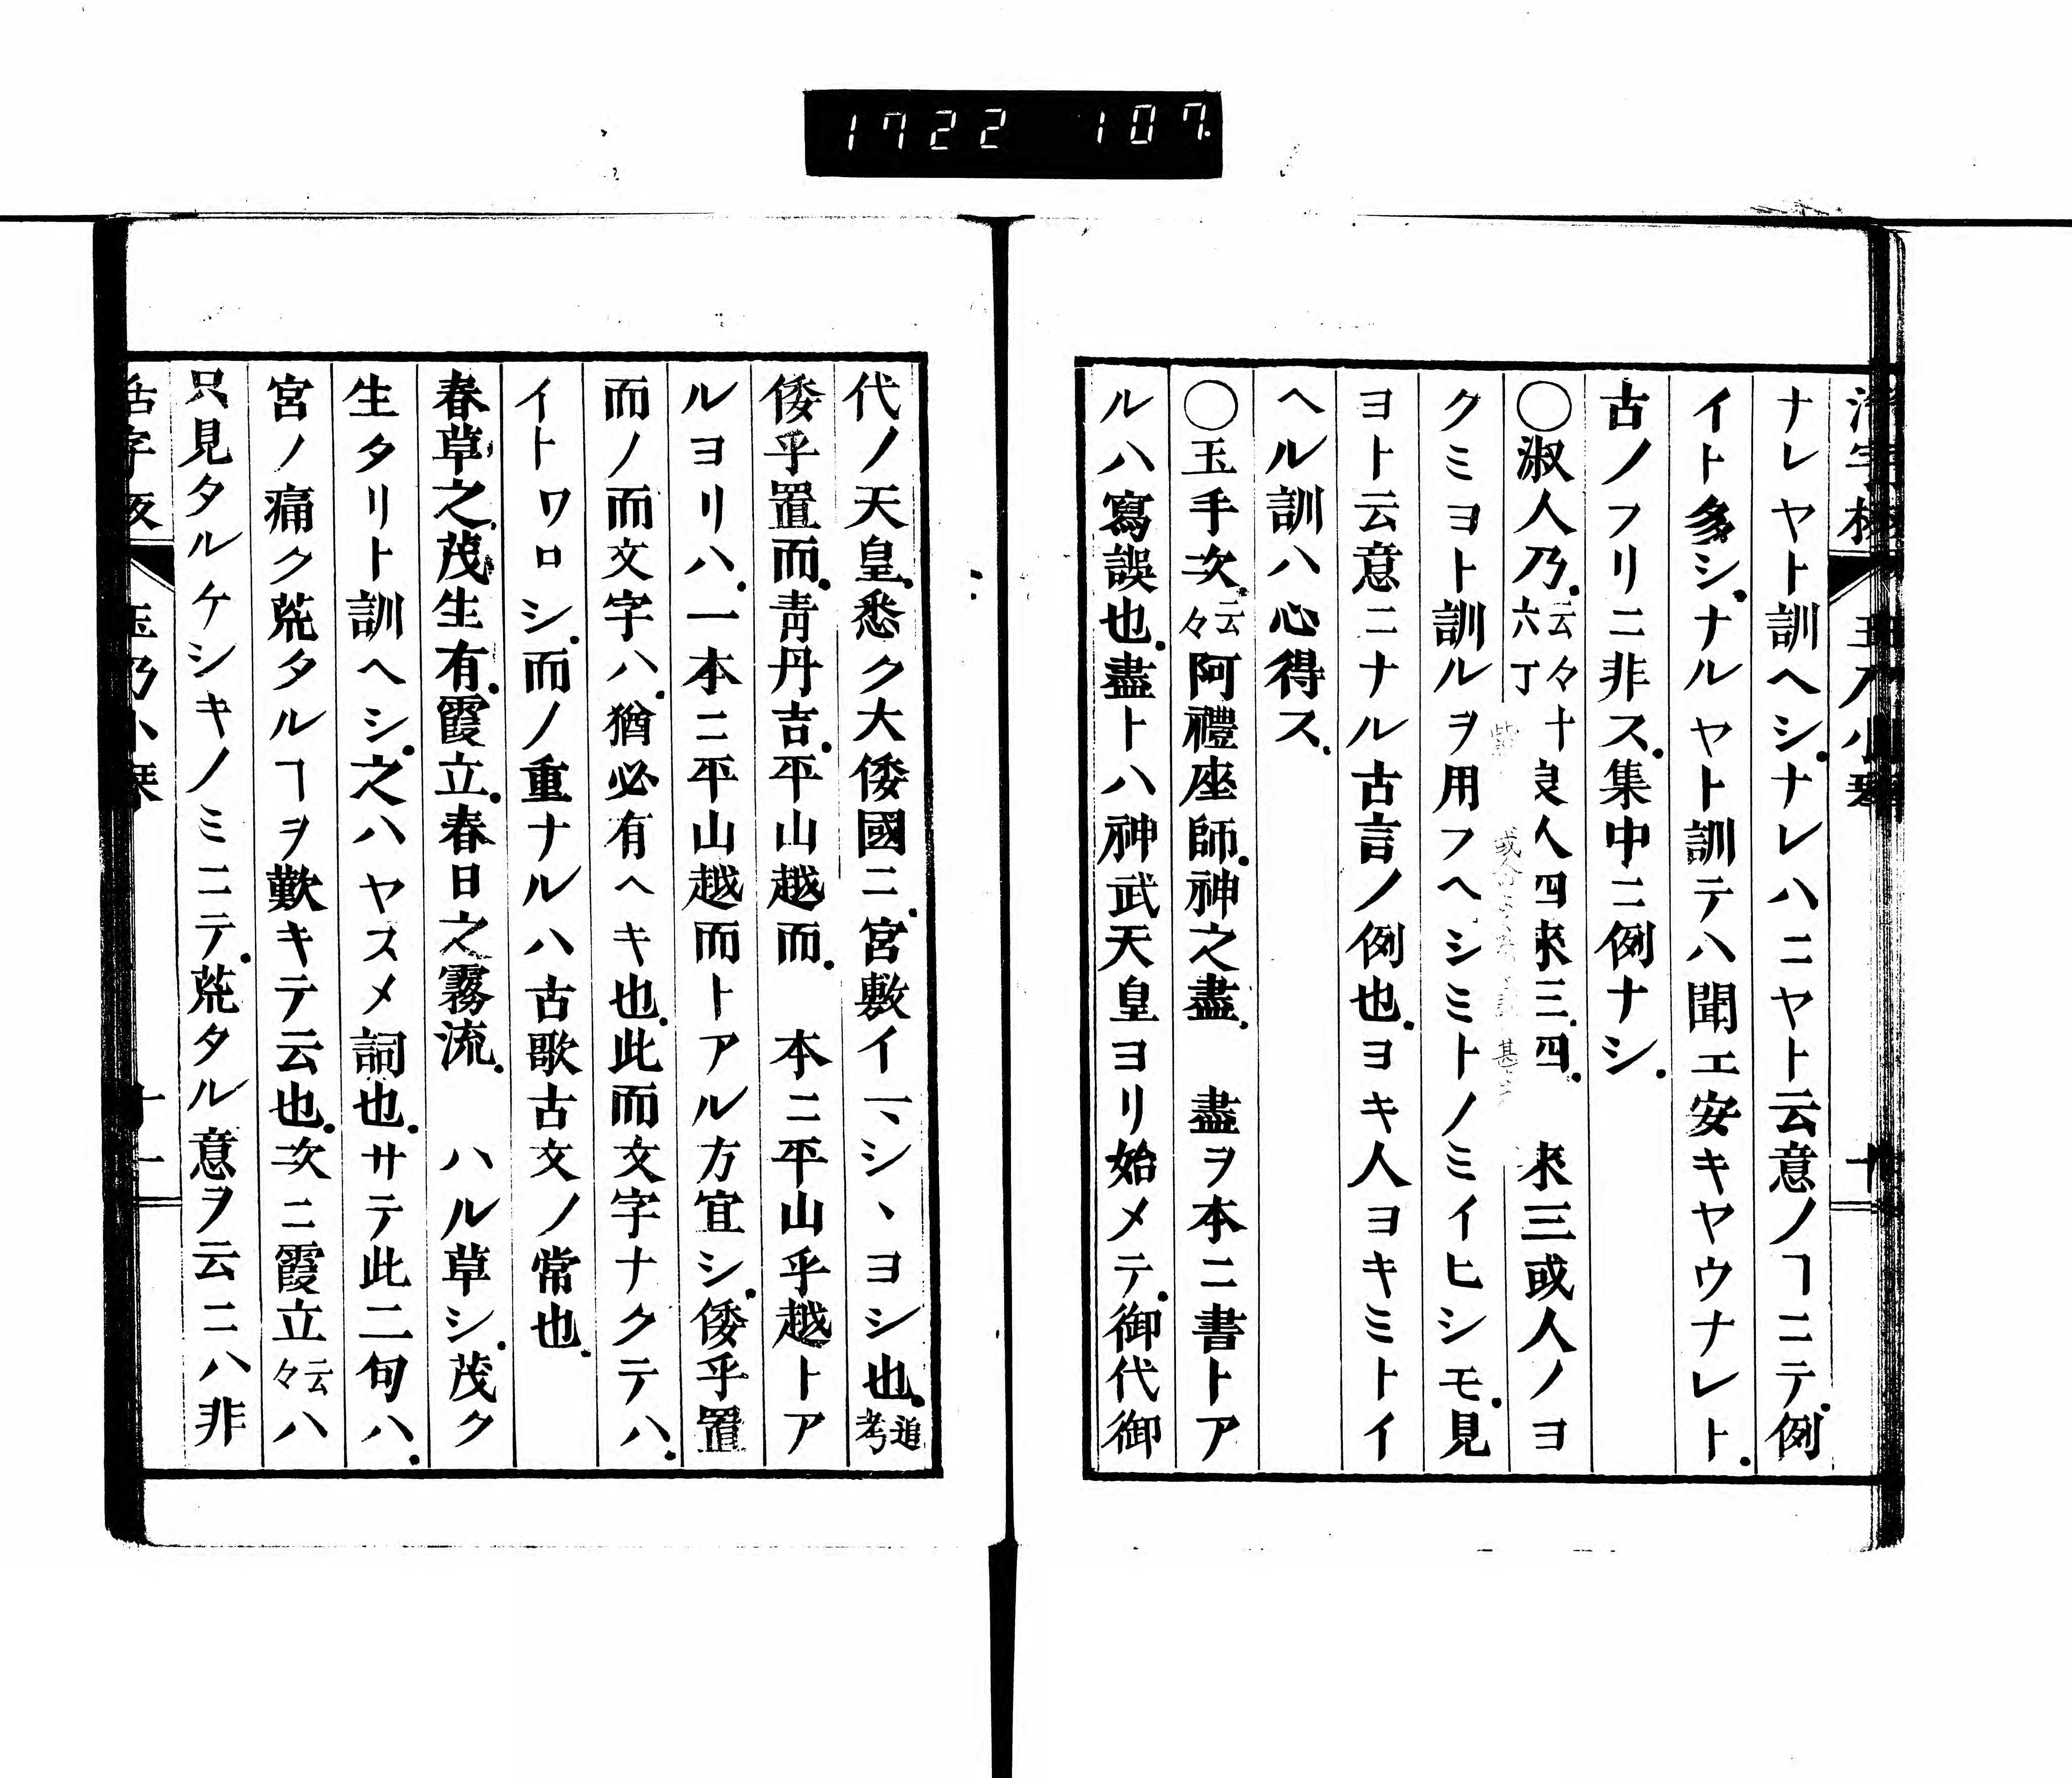 1722 107
ナレヤト訓ヘシ.ナレハニヤト云意ノヿニテ.例
イト多シ.ナルヤト訓テハ聞エ安キヤウナレト.
古ノフリニ非ス.集中ニ例ナシ.
〇淑人乃.云々六丁 良人四來三.四. 來三或人ノヨ
クミヨト訓ルヲ用フヘシミトノミイヒシモ.見
ヨト云意ニナル古言ノ例也.ヨキ人ヨキミトイ
ヘル訓ハ心得ス.
〇玉手次.云々阿禮座師.神之盡. 盡ヲ本ニ書トア
ルハ寫誤也.盡トハ神武天皇ヨリ始メテ.御代御
代ノ天皇.悉ク大倭國ニ.宮敷イマシヽヨシ也.追考
倭乎置而.靑丹吉.平山越而. 本ニ平山乎越トア
ルヨリハ.一本ニ平山越而トアル方宜シ.倭乎置
而ノ而文字ハ.猶必有ヘキ也.此而文字ナクテハ.
イトワロシ.而ノ重ナルハ古歌古文ノ常也.
春草之.茂生有.霞立.春日之霧流. ハル草シ.茂ク
生タリト訓ヘシ.之ハヤスメ詞也.サテ此二句ハ.
宮ノ痛ク荒タルヿヲ歎キテ云也.次ニ霞立云々ハ
只見タルケシキノミニテ.荒タル意ヲ云ニハ非